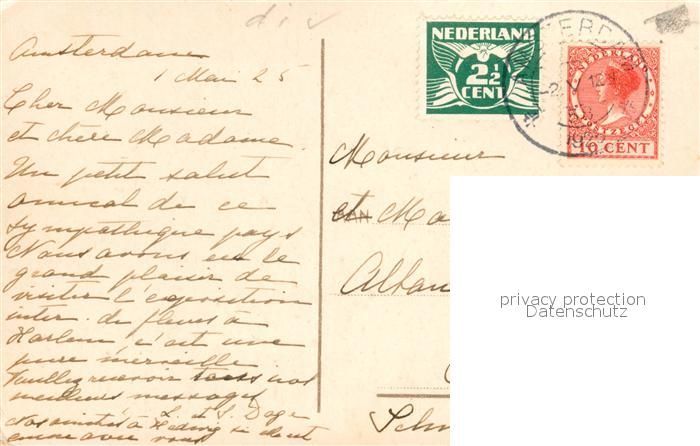 div
Amsterdam
1 Mai 25
Cher Monsieur
et chère Madame.
Un petit salut
amical de ce
sympathique pays
Nous avons eu le
grand plaisir de
visiter l'exposition
inter. de fleurs à
Harlem, c'est une
pure merveille.
Veuillez recevoir tous nos
meilleurs messages
L. et S.
Nos amitiés à si elle est
encore avec vous
NEDERLAND
2½
CENT
AMSTERDAM
NEDERLAND
POSTZEGEL
10 CENT
Monsieur
et Ma
AAN
privacy protection
Datenschutz